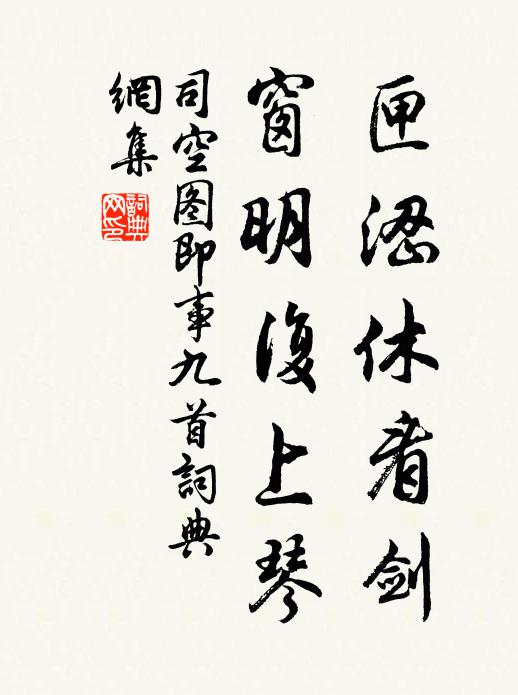 匣澀休看剑
窗明復上琴
司空图即事九首詞典
網集
詞典
网印